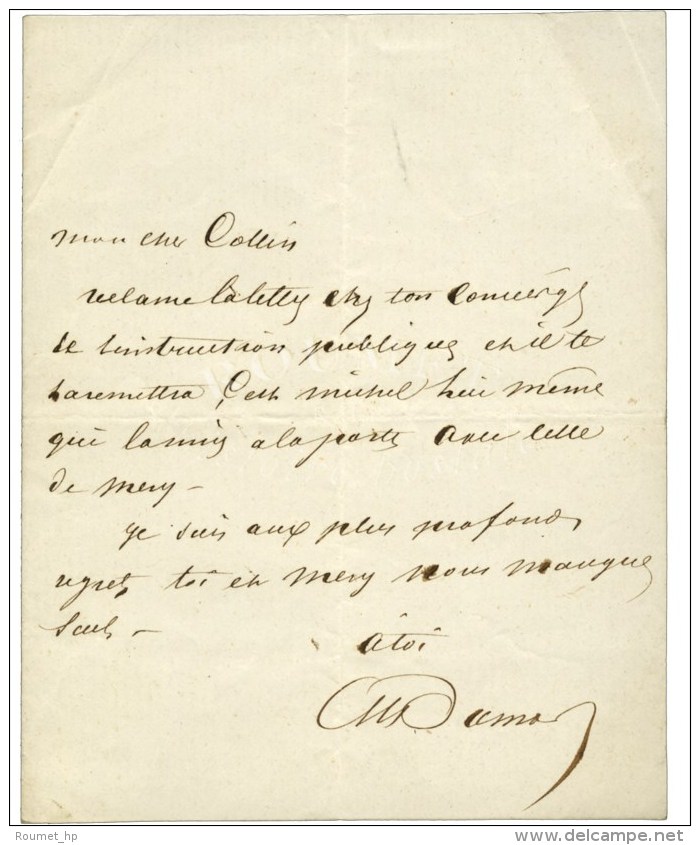 mon cher Collin
reclame la lettre chez ton concierge
de l'instruction publique et il te
la remettra, c'est michel lui même
qui la mis a la porte avec celle
de mery -
je suis aux plus profonds
regrets toi et mery nous manquez
seuls -
a toi
Dumas
Roumet_hp
www.delcampe.net